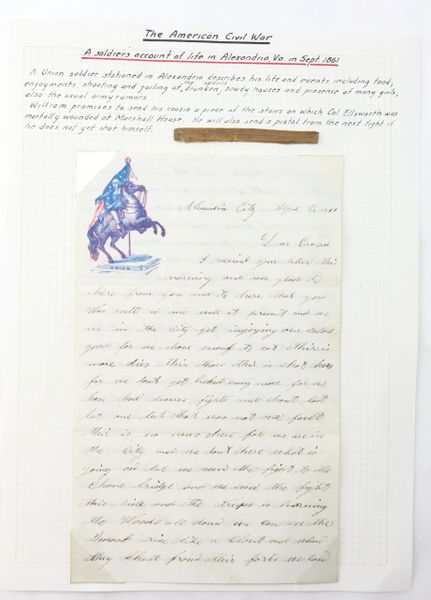 The American Civil War
A soldier's account of life in Alexandria, Va. in Sept. 1861
A Union soldier stationed in Alexandria describes his life and events including food,
enjoyments, shooting and jailing of the upidity drunken, bawdy houses and presence of many girls,
also the usual army rumors.
William promises to send his cousin a piece of the stairs on which Col. Ellsworth was
mortally wounded at Marshall House. He will also send a pistol from the next fight if
he does not get shot himself.
UNION
Alexandria City, Sept 1861
Dear Cousin
I received your letter this
morning and was glad to
here from you and to here that you
was well is one well at present and we
are in the City yet injoying our selves
good for we have enough to eat there is
more dies this
for we dont get licked any more for we
have had fights and dont lost
but one but that was not our fault
this is no news here for we are in
the City and we dont here what is
going on but we seen the fight to the
Chane bridge and we seen the fight
this side and the is burning
the Woods all down we can see the
Smoak rise like a Cloud and when
they from their forts we can